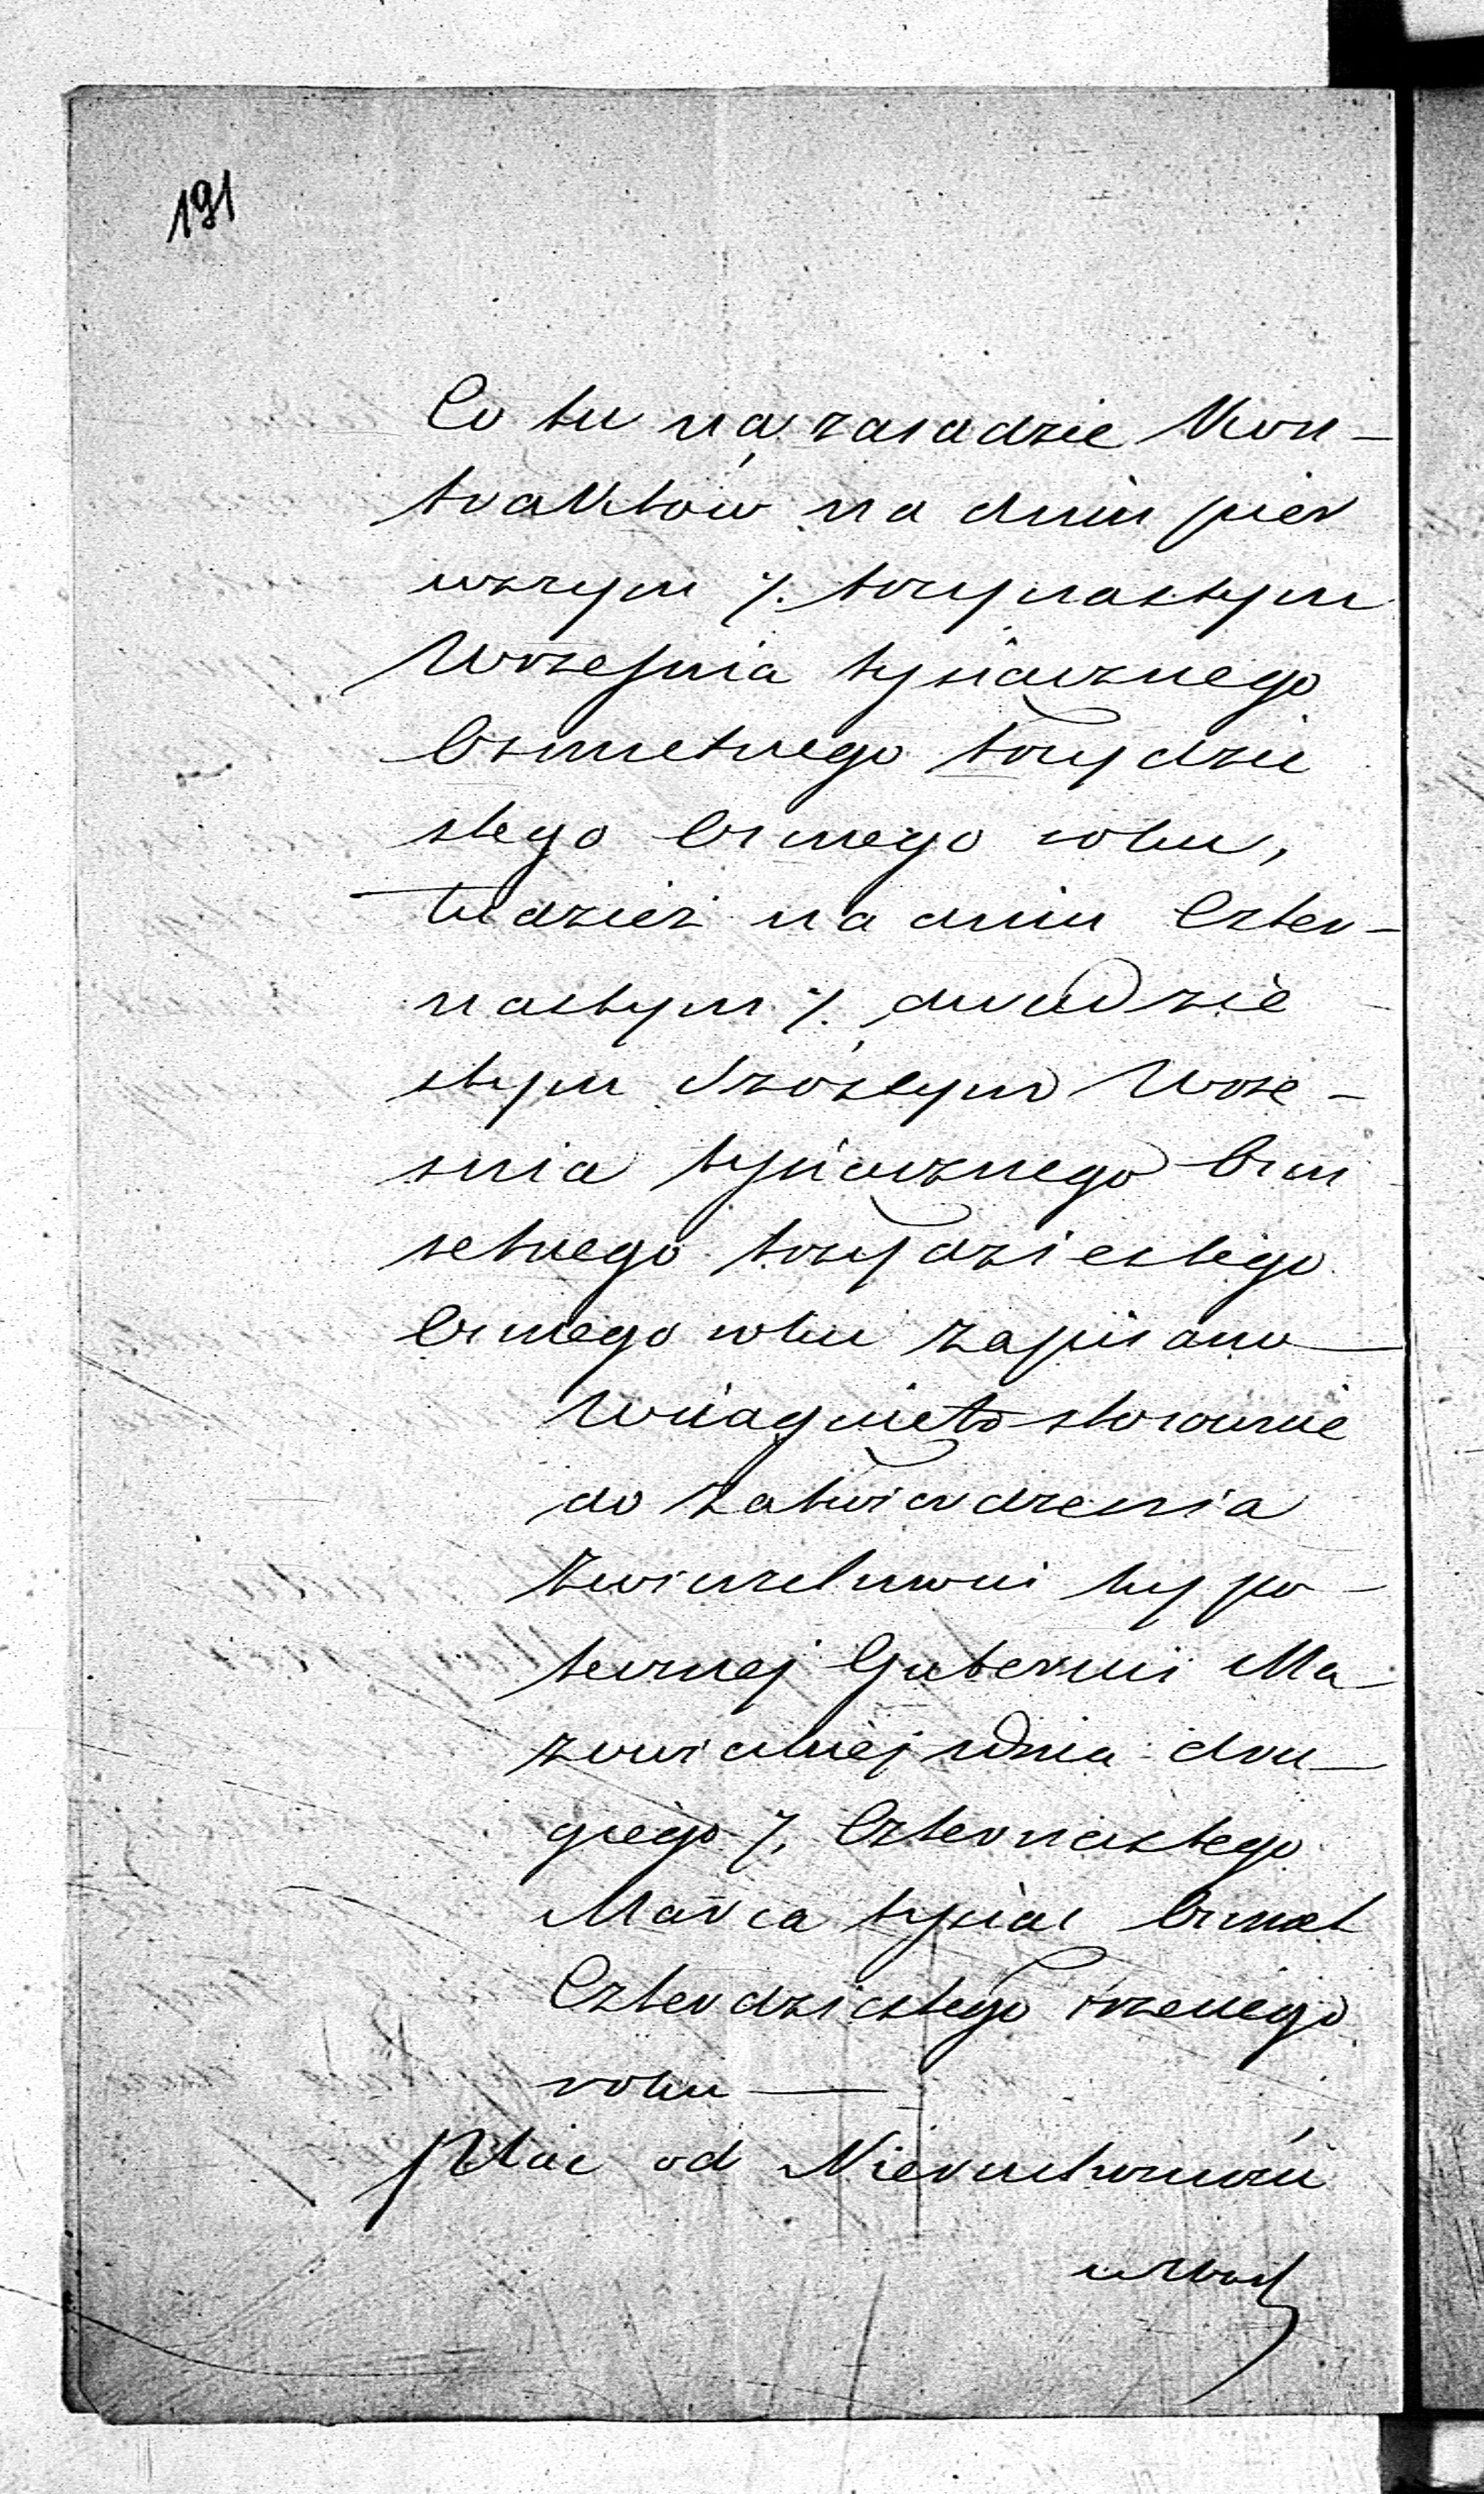 191
Co tu na zasadzie Kon-
traktów na dniu pier
wszym /. trzynastym
Wrzesnia tysiącznego
Osmsetnego trzydzie
stego Osmego roku,
tudzież na dniu Czter-
nastym /. dwudzie
stym szóstym Wrze-
snia tysiącznego Osm
setnego trzydziestego
Osmego roku zapisano
Wciągnięto stosownie
do Zatwierdzenia
Zwierzchności hypo-
tecznej Gubernii Ma
zowieckiej z dnia dru-
giego /. Czternastego
Marca tysiąc Osmset
Czterdziestego trzeciego
roku —
Plac od Nieruchomości